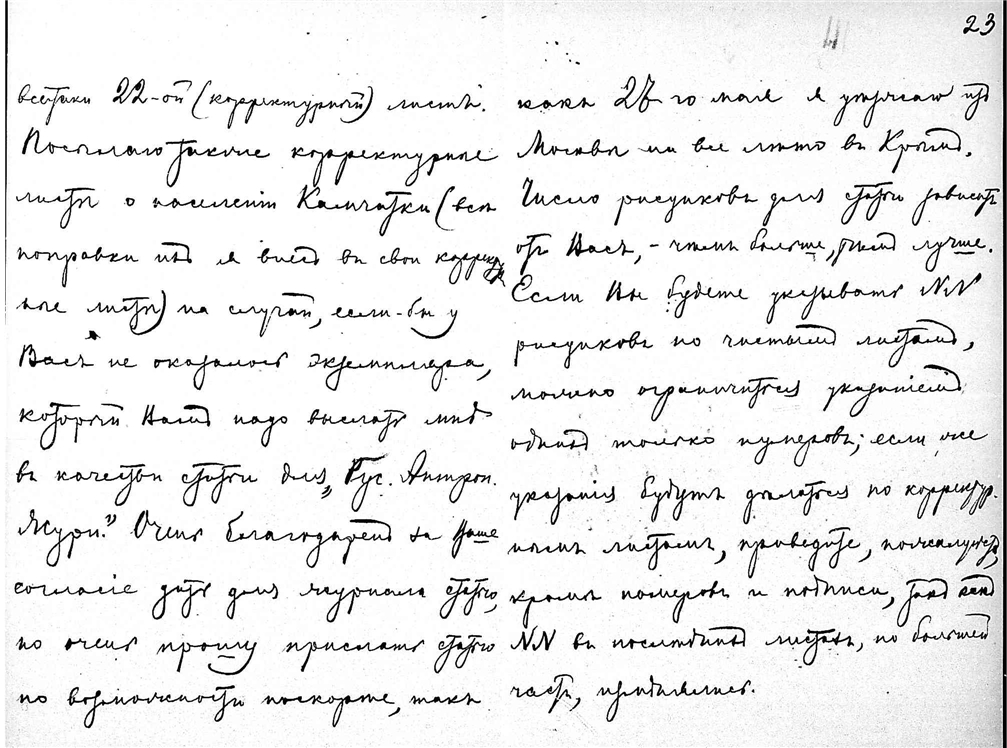 23
всетаки 22-ой (корректурный) листъ.
Посылаю также корректурные
листы о населеніи Камчатки (всѣ
поправки изъ я внесъ въ свои корректур
ные листы) на случай, если-бы у
Васъ не оказалось экземпляра,
который Вамъ надо выслать мнѣ
въ качествѣ статьи для „Рус. Антроп.
Журн." Очень благодаренъ за Ваше
согласіе дать для журнала статью,
но очень прошу прислать статью
по возможности поскорѣе, такъ
какъ 27-го мая я уѣзжаю изъ
Москвы на все лѣто въ Крымъ.
Число рисунковъ для статьи зависитъ
отъ Васъ, - чѣмъ больше, тѣмъ лучше.
Если Вы будете указывать NN
рисунковъ по чистымъ листамъ,
можно ограничиться указаніемъ
однихъ только нумеровъ; если же
указанія будутъ дѣлаться по корректур-
нымъ листамъ, приведите, пожалуйста,
кромѣ номеровъ и подписи, такъ какъ
NN въ послѣднихъ листахъ, по большей
части, измѣнились.